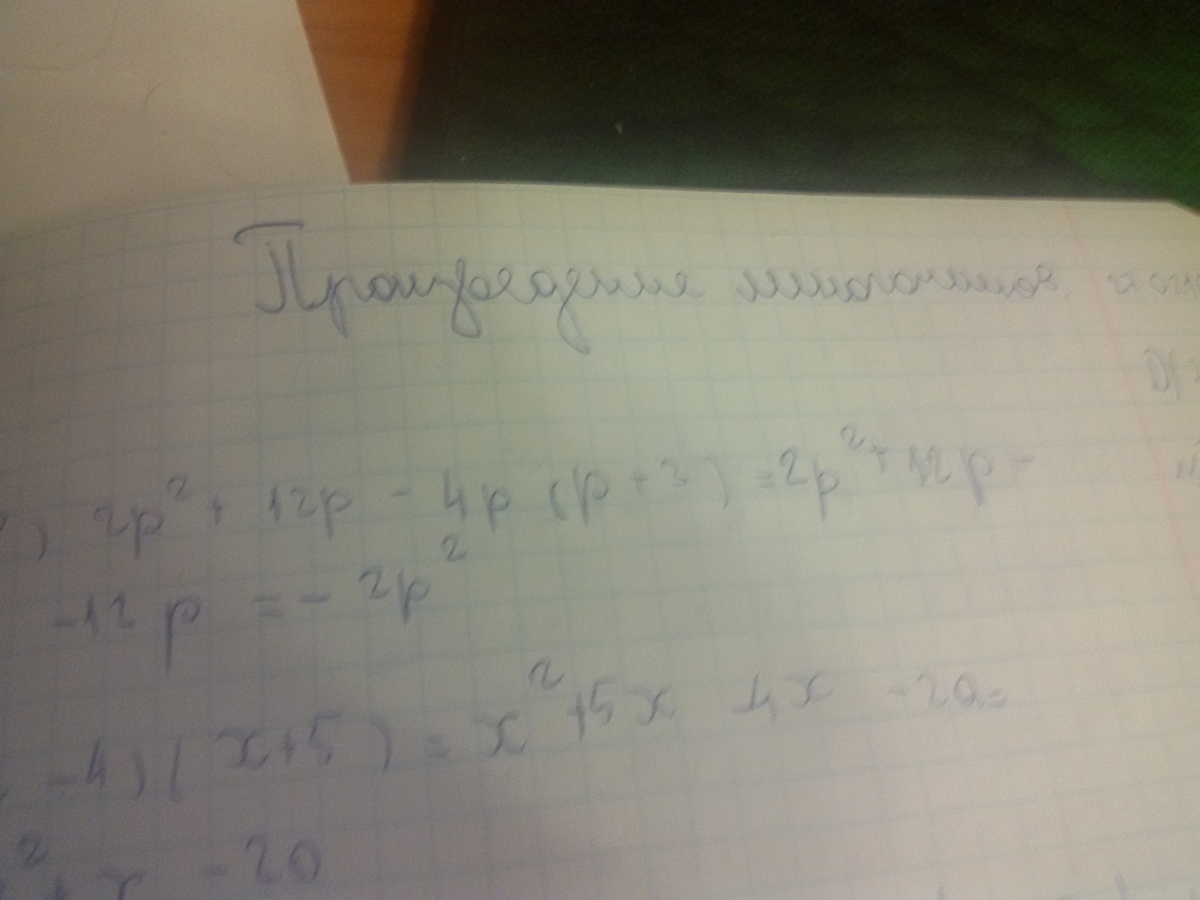 Произведение многочленов
) 2p² + 12p - 4p (p + 3) = 2p² + 12p -
-12p = - 2p²
-4)(x+5) = x² +5x 4x -20=
² + x - 20